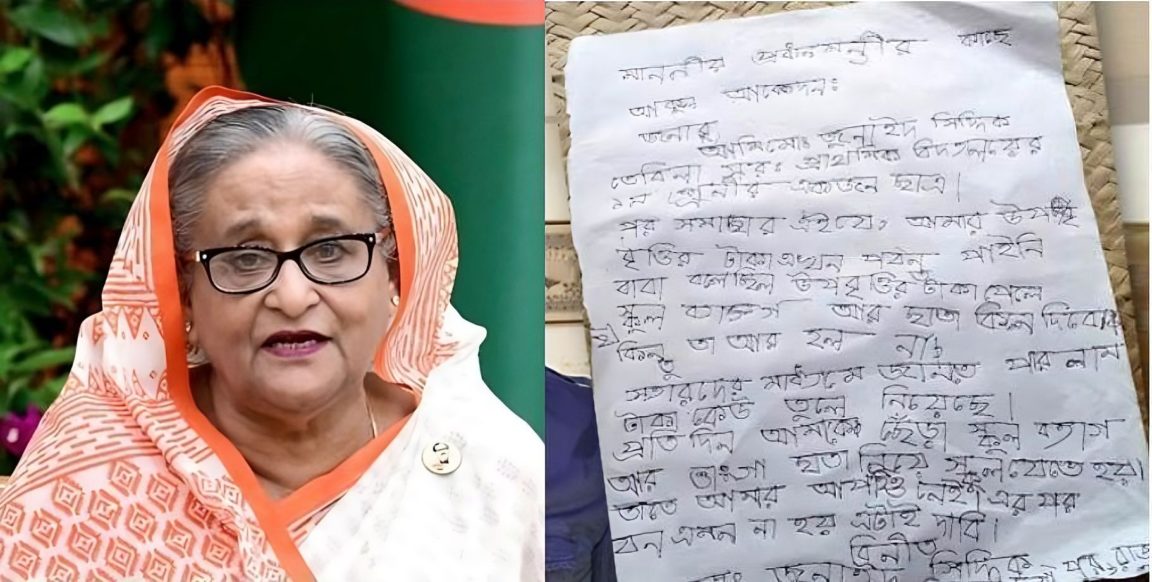 মাননীয় প্রধানমন্ত্রীর কাছে
আকুল আবেদন:
জনাব,
আমি মো: জুনাইদ সিদ্দিক
তেবিলা সর: প্রাথমিক বিদ্যালয়ের
শ্রেনীর একজন ছাত্র।
পর সমাচার এইযে, আমার উপ
বৃত্তির টাকা এখন পর্যন্ত পাইনি
বাবা বলেছিল উপবৃত্তির টাকা পেলে
স্কুল ব্যাগ আর ছাতা কিনে দিবে
কিন্তু তা আর হল না;
সহারদের মাধ্যমে জানিতে পারলাম
টাকা কেউ তুলে নিয়েছে।
প্রতিদিন আমাকে ছেঁড়া স্কুল ব্যাগ
আর ভাংগা ছাতা নিয়ে স্কুল যেতে হয়।
তাতে আমার আপত্তি নেই এর পর
যেন এমন না হয় এটাই দাবি।
বিনীত
মো: জুনাইদ সিদ্দিক